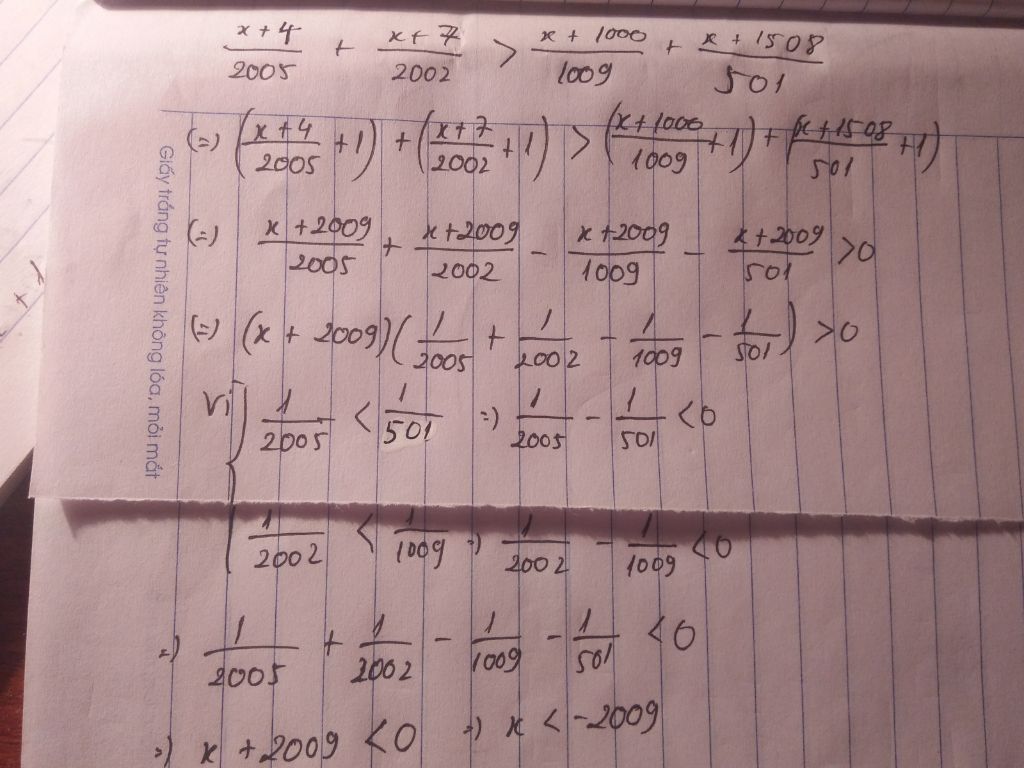 x + 4 / 2005 + x + 7 / 2002 > x + 1000 / 1009 + x + 1508 / 501
(=) (x + 4 / 2005 + 1) + (x + 7 / 2002 + 1) > (x + 1000 / 1009 + 1) + (x + 1508 / 501 + 1)
(=) x + 2009 / 2005 + x + 2009 / 2002 - x + 2009 / 1009 - x + 2009 / 501 > 0
(=) (x + 2009) (1 / 2005 + 1 / 2002 - 1 / 1009 - 1 / 501) > 0
Vì { 1 / 2005 < 1 / 501 =) 1 / 2005 - 1 / 501 < 0
1 / 2002 < 1 / 1009 =) 1 / 2002 - 1 / 1009 < 0
=) 1 / 2005 + 1 / 2002 - 1 / 1009 - 1 / 501 < 0
=) x + 2009 < 0 =) x < -2009
Giấy trắng tự nhiên không lóa, mỏi mắt